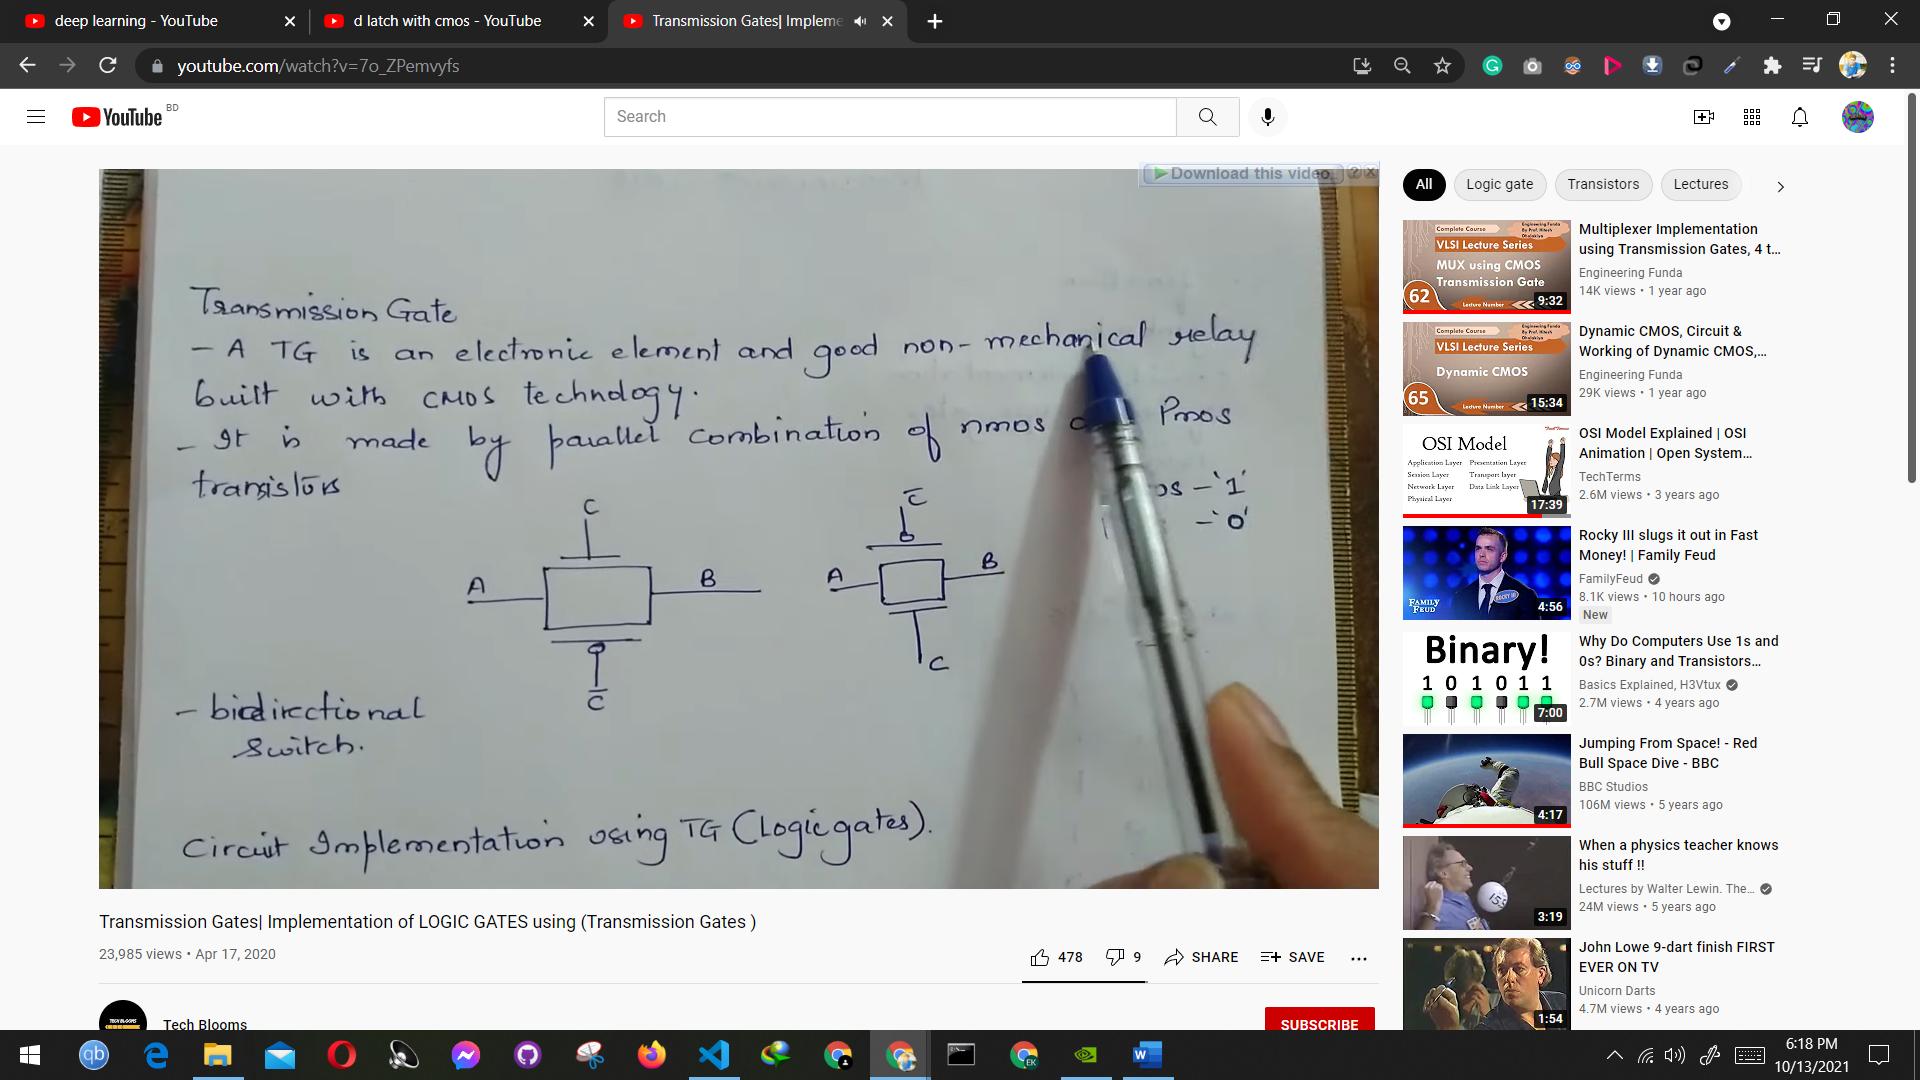 deep learning - YouTube
d latch with cmos - YouTube
Transmission Gates| Impleme
youtube.com/watch?v=7o_ZPemvyfs
YouTube BD
Search
Download this video
Transmission Gate
- A TG is an electronic element and good non-mechanical relay
built with CMOS technology.
- It is made by parallel combination of nmos Pmos
transistors
C
C̅
os - '1'
- '0'
A
B
A
B
C̅
C
- bidirectional
switch.
Circuit Implementation using TG (Logic gates).
Transmission Gates| Implementation of LOGIC GATES using (Transmission Gates )
23,985 views • Apr 17, 2020
478
9
SHARE
SAVE
TECH BLOOMS
Tech Blooms
SUBSCRIBE
All
Logic gate
Transistors
Lectures
Complete Course
Engineering Funda
VLSI Lecture Series
MUX using CMOS
Transmission Gate
62
Lecture Number
9:32
Multiplexer Implementation
using Transmission Gates, 4 t...
Engineering Funda
14K views • 1 year ago
Complete Course
Engineering Funda
VLSI Lecture Series
Dynamic CMOS
65
Lecture Number
15:34
Dynamic CMOS, Circuit &
Working of Dynamic CMOS,...
Engineering Funda
29K views • 1 year ago
OSI Model
Application Layer
Presentation Layer
Session Layer
Transport layer
Network Layer
Data Link Layer
Physical Layer
17:39
OSI Model Explained | OSI
Animation | Open System...
TechTerms
2.6M views • 3 years ago
FAMILY
FEUD
ROCKY III
4:56
Rocky III slugs it out in Fast
Money! | Family Feud
FamilyFeud
8.1K views • 10 hours ago
New
Binary!
1 0 1 0 1 1
7:00
Why Do Computers Use 1s and
0s? Binary and Transistors...
Basics Explained, H3Vtux
2.7M views • 4 years ago
4:17
Jumping From Space! - Red
Bull Space Dive - BBC
BBC Studios
106M views • 5 years ago
3:19
When a physics teacher knows
his stuff !!
Lectures by Walter Lewin. The...
24M views • 5 years ago
1:54
John Lowe 9-dart finish FIRST
EVER ON TV
Unicorn Darts
4.7M views • 4 years ago
qb
EK
W
6:18 PM
10/13/2021